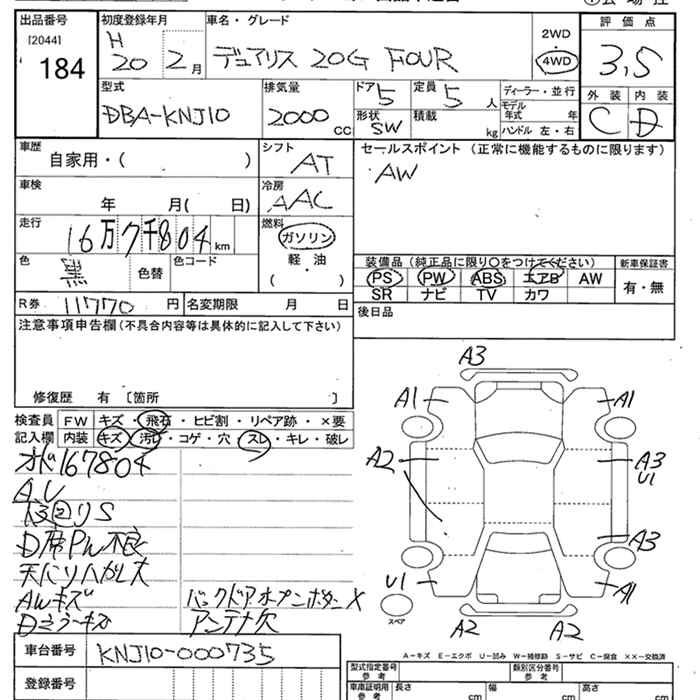 出品番号
[2044]
184
初度登録年月
H
20 2月
車名・グレード
デュアリス 20G FOUR
2WD
4WD
評価点
3,5
外装 内装
C D
型式
DBA-KNJ10
排気量
2000 CC
ドア
5
定員
5 人
形状
SW
積載
kg
ディーラー・並行
モデル年式 年
ハンドル 左・右
車歴
自家用・( )
シフト
AT
セールスポイント (正常に機能するものに限ります)
AW
車検
年 月( 日)
冷房
AAC
走行
16万7千804 km
燃料
ガソリン
軽・油
( )
色
黒
色替
色コード
装備品 (純正品に限り○をつけてください)
PS PW ABS エアB AW
SR ナビ TV カワ
新車保証書
有・無
R券 11770 円
名変期限 月 日
後日品
注意事項申告欄 (不具合内容等は具体的に記入して下さい)
修復歴 有 〔箇所 〕
検査員記入欄
FW キズ・飛石・ヒビ割・リペア跡・×要
内装 キズ・汚れ・コゲ・穴・スレ・キレ・破レ
オド167804
A,U
D席PW不良
天バリハガレ大
AWキズ
Dミラーキズ
バックドアオープンボタンX
アンテナ欠
A3
A1 A1
A2 A3
U1
A3
U1 A1
スペア
A2 A2
A=キズ E=エクボ U=凹み W=補修跡 S=サビ C=腐食 XX=交換済
車台番号 KNJ10-000735
登録番号
型式指定番号
参考
類別区分番号
参考
車庫証明用
参考
長さ cm
幅 cm
高さ cm